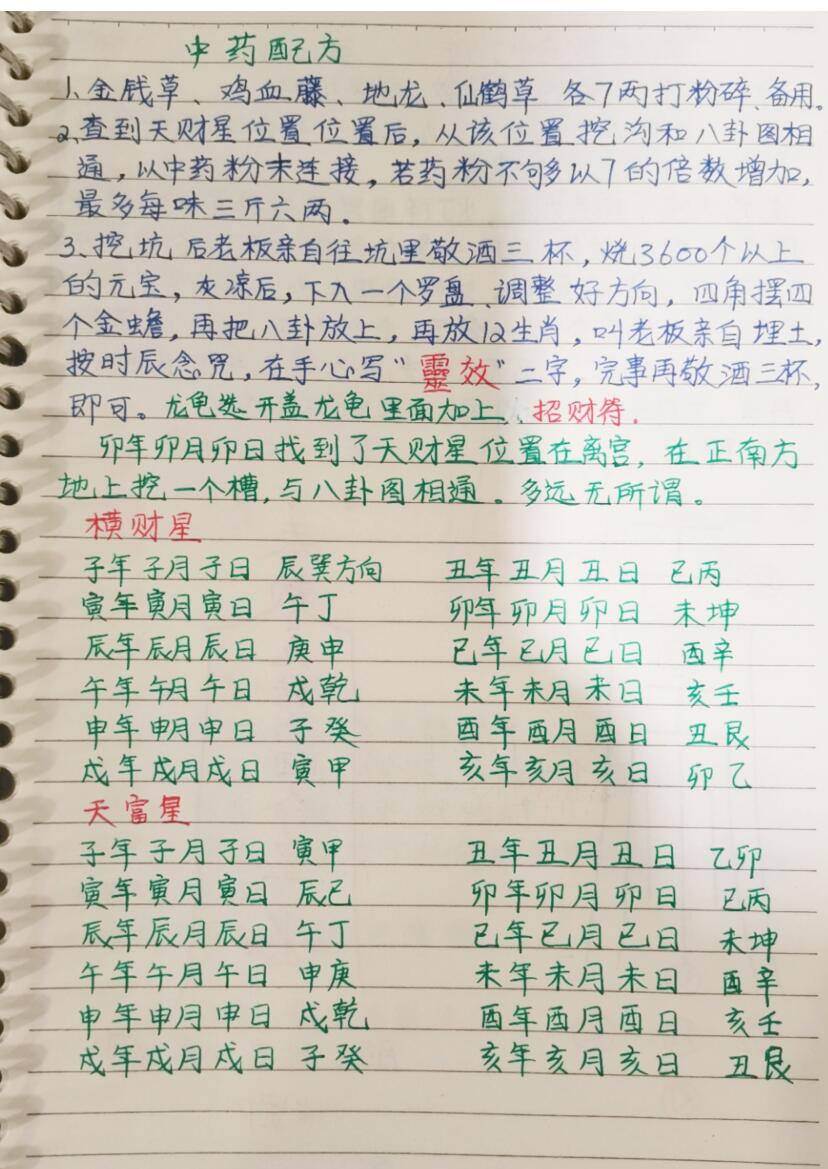 中药配方
1、金钱草、鸡血藤、地龙、仙鹤草 各7两打粉碎、备用。
2、查到天财星位置位置后，从该位置挖沟和八卦图相
通，以中药粉末连接，若药粉不够多以7的倍数增加，
最多每味三斤六两。
3、挖坑后老板亲自往坑里敬酒三杯，烧3600个以上
的元宝，灰凉后，下入一个罗盘、调整好方向，四角摆四
个金蟾，再把八卦放上，再放12生肖，叫老板亲自埋土，
按时辰念咒，在手心写“靈效”二字，完事再敬酒三杯，
即可。龙龟选开盖龙龟里面加上、招财符.
卯年卯月卯日找到了天财星位置在离宫，在正南方
地上挖一个槽，与八卦图相通。多远无所谓。
横财星
子年子月子日 辰巽方向 丑年丑月丑日 巳丙
寅年寅月寅日 午丁 卯年卯月卯日 未坤
辰年辰月辰日 庚申 巳年巳月巳日 酉辛
午年午月午日 戌乾 未年未月未日 亥壬
申年申月申日 子癸 酉年酉月酉日 丑艮
戌年戌月戌日 寅甲 亥年亥月亥日 卯乙
天富星
子年子月子日 寅甲 丑年丑月丑日 乙卯
寅年寅月寅日 辰巳 卯年卯月卯日 巳丙
辰年辰月辰日 午丁 巳年巳月巳日 未坤
午年午月午日 申庚 未年未月未日 酉辛
申年申月申日 戌乾 酉年酉月酉日 亥壬
戌年戌月戌日 子癸 亥年亥月亥日 丑艮